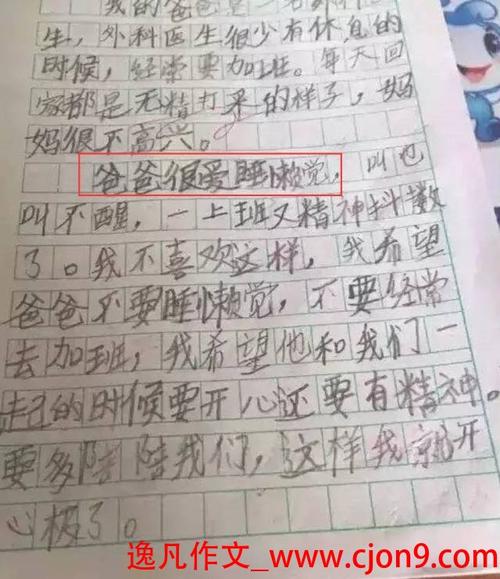 我的爸爸是一名外科医
生，外科医生很少有休息的
时候，经常要加班。每天回
家都是无精打采的样子，妈
妈很不高兴。
爸爸很爱睡懒觉，叫也
叫不醒，一上班又精神抖数
了。我不喜欢这样，我希望
爸爸不要睡懒觉，不要经常
去加班，我希望他和我们一
起的时候要开心还要有精神。
要多陪陪我们，这样我就开
心极了。
逸凡作文_www.cjon9.com